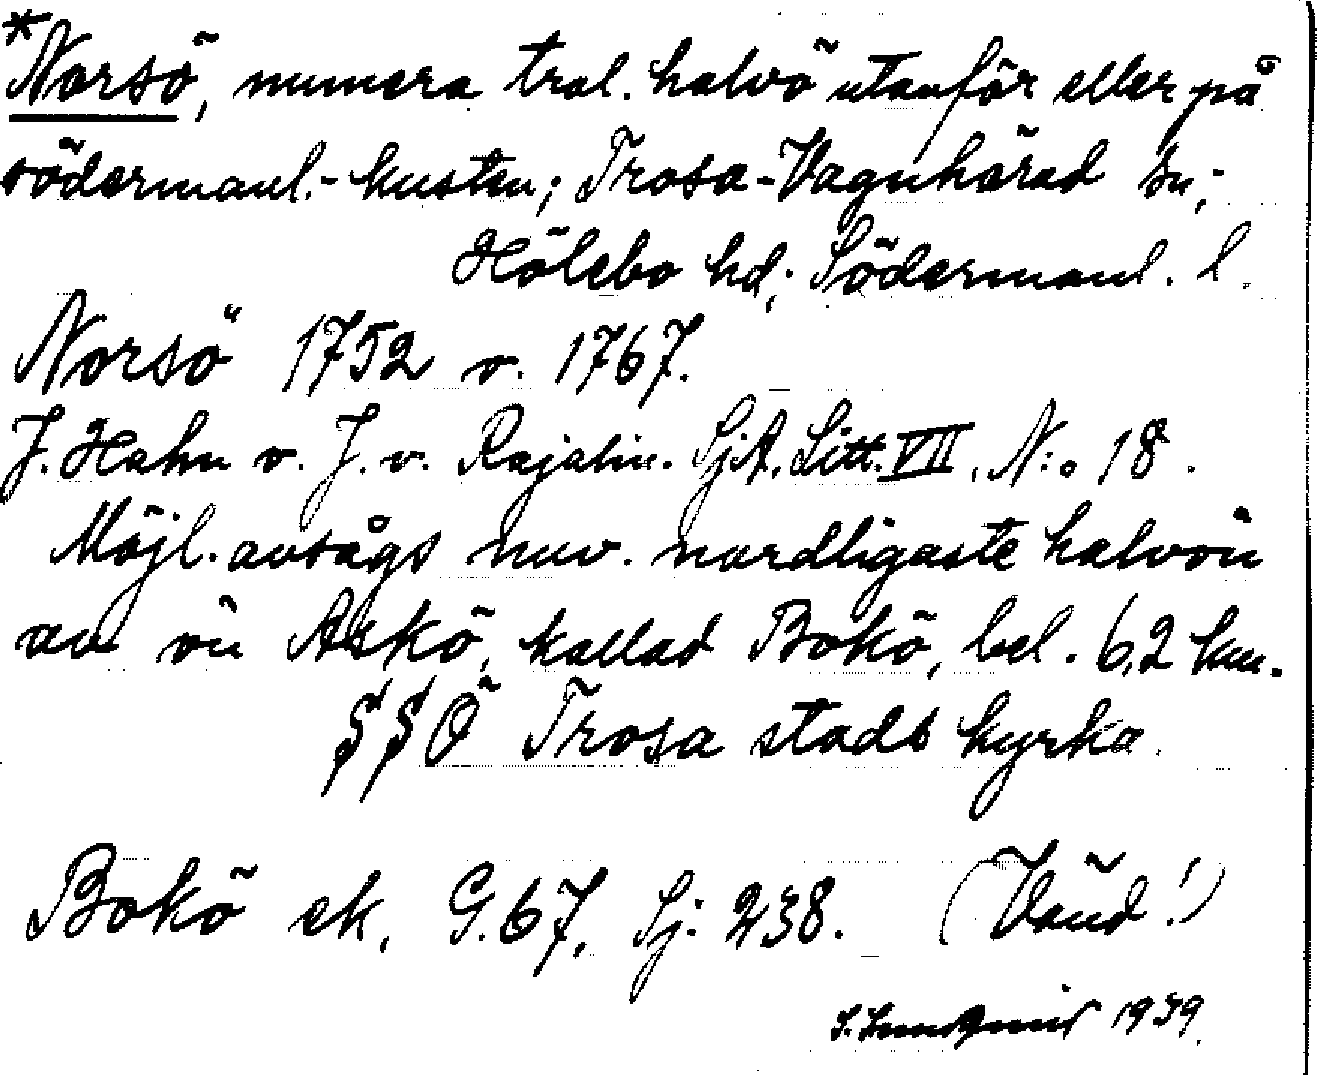 *Norsö, numera trol. halvö utanför eller på
södermanl.-kusten; Trosa-Vagnhärad sn,-
Hölebo hd; Södermanl. l.
Norsö 1752 o. 1767.
J. Hahn o. J. v. Rajalin. SjA. Litt. VII, N:o 18.
Möjl. avsågs nuv. nordligaste halvön
av ön Askö, kallad Bokö, bel. 6,2 km.
§§Ö Trosa stads kyrka.
Bokö ek. G.67, Sj: 238. (Vänd!)
1939.